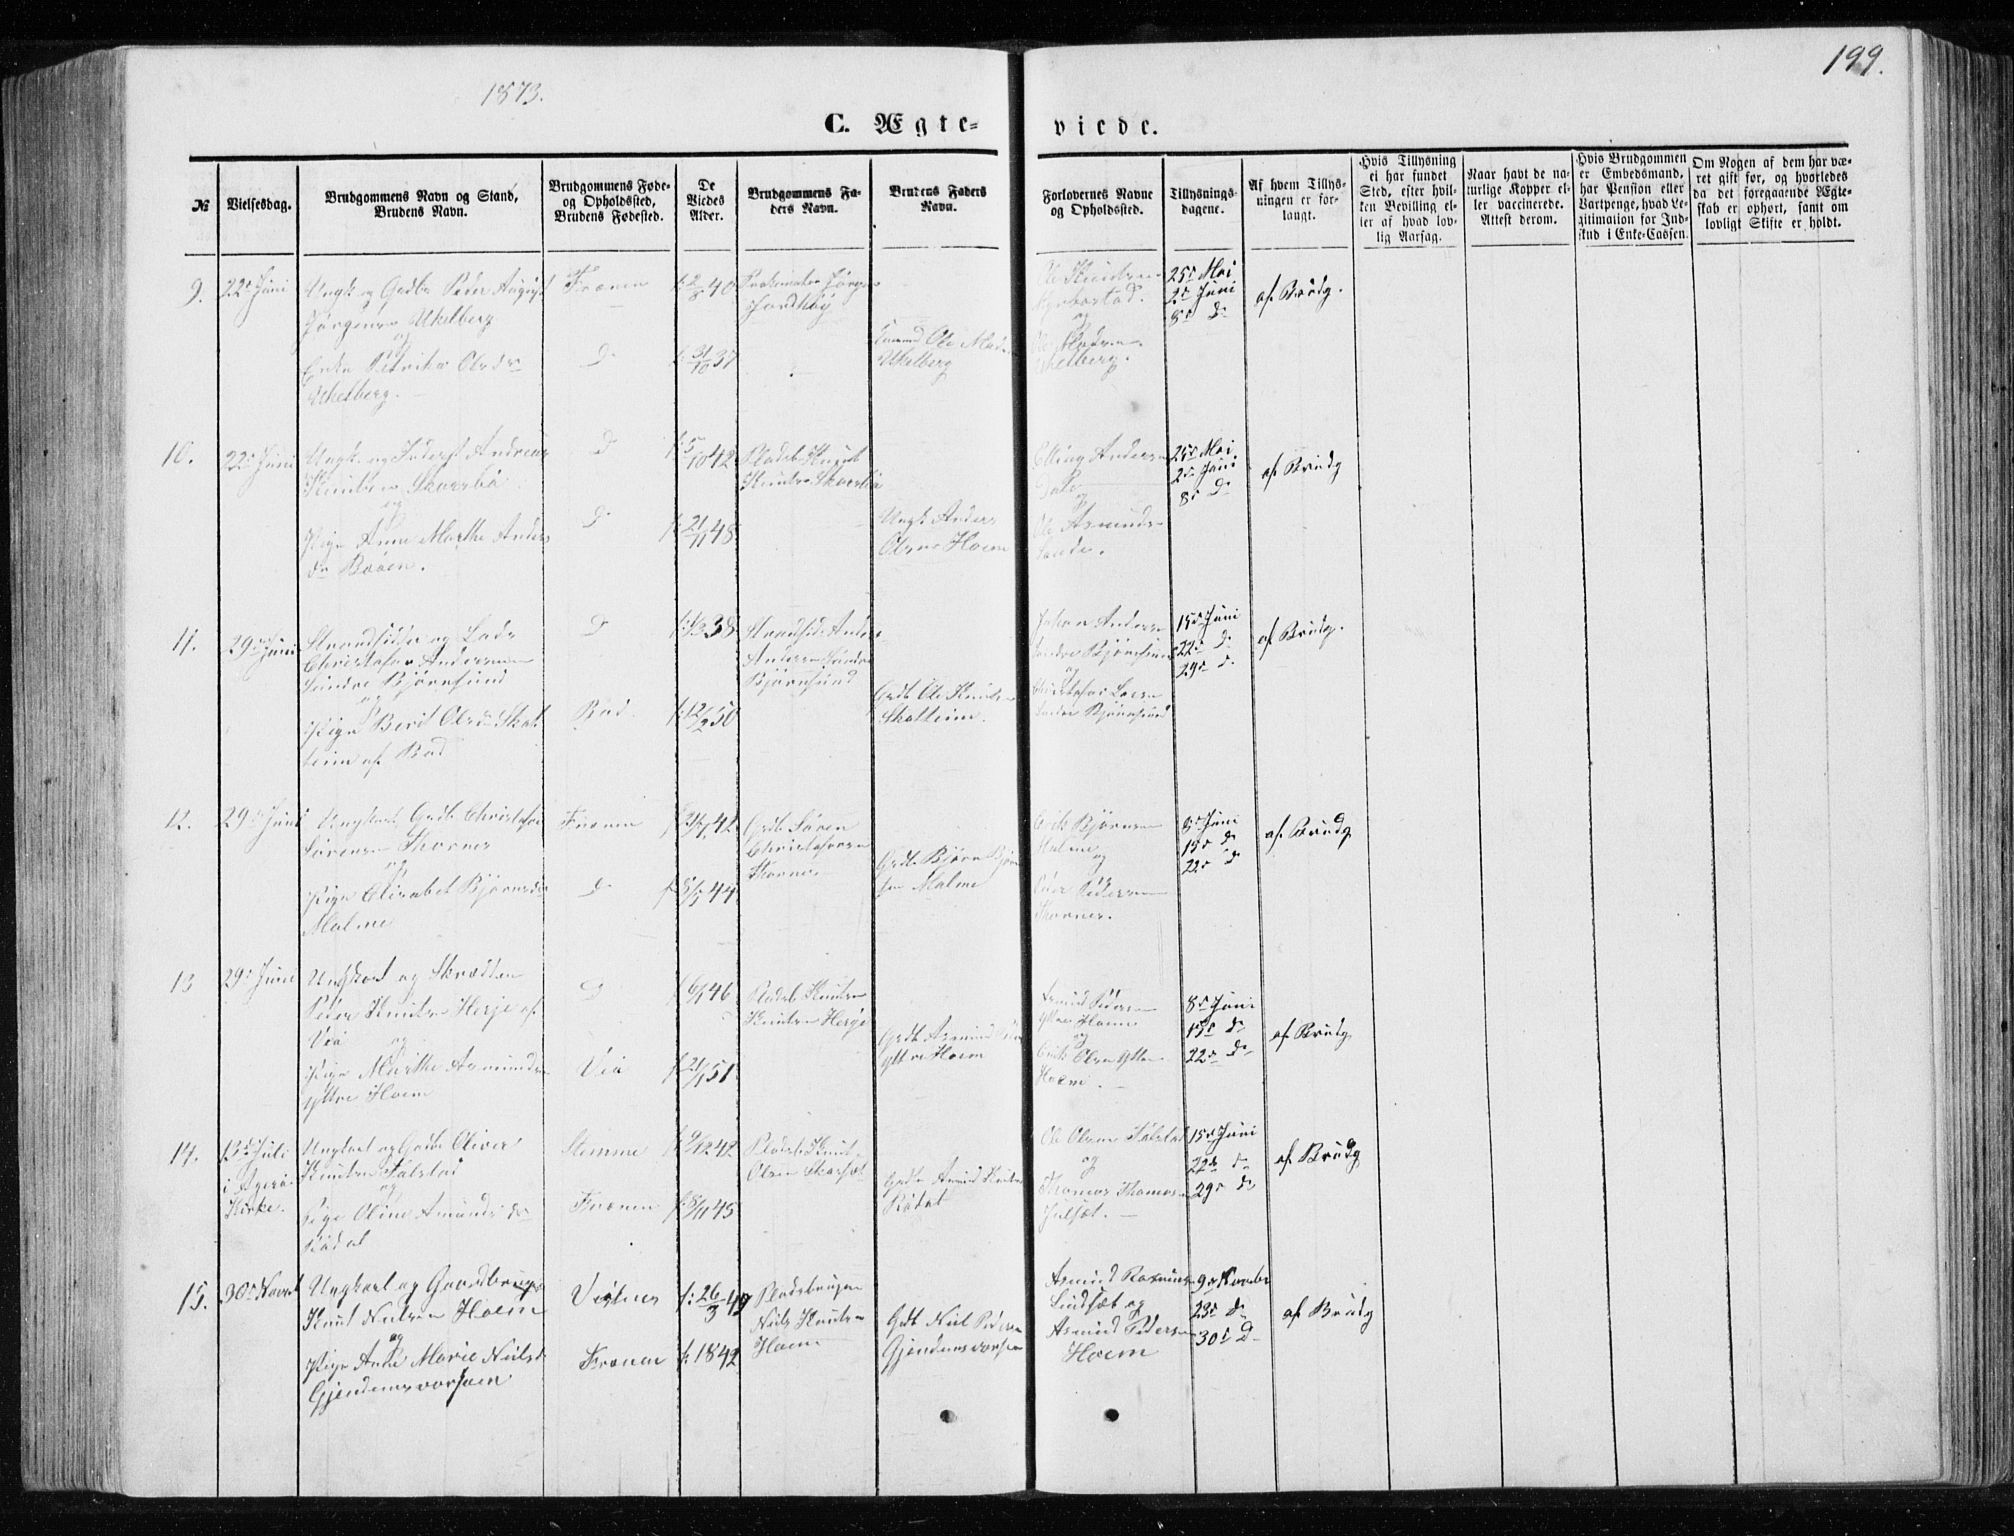 1873.
199.
C. Ægte-
viede.
№
Vielsesdag.
Brudgommens Navn og Stand,
Brudens Navn.
Brudgommens Føde-
og Opholdssted,
Brudens Fødested.
De
Viedes
Alder.
Brudgommens Fa-
ders Navn.
Brudens Faders
Navn.
Forlovernes Navne
og Opholdssted.
Tillysnings-
dagene.
Af hvem Tillys-
ningen er for-
langt.
Hvis Tillysning
ei har fundet
Sted, efter hvil-
ken Bevilling el-
ler af hvad lov-
lig Aarsag.
Naar havt de na-
turlige Kopper el-
ler vaccinerede.
Attest derom.
Hvis Brudgommen
er Embedsmand,
har Pension eller
Vartpenge, hvad Le-
gitimation for Ind-
skud i Enke-Cassen.
Om Nogen af dem har væ-
ret gift før, og hvorledes
da det foregaaende Ægte-
skab er ophørt, samt om
lovligt Skifte er holdt.
9.
22de Juni
Ungk. og Grdbr. Peder August
Jørgensen Ukelberg
og
Enke Olsdr
Ukelberg.
Frænen
D
f. 2/8 40
f. 31/10 37
Jørgen
Ole Madsen
Ukelberg
Ole Knutsen
og
Ole Madsen
Ukelberg.
25de Mai
2de Juni
8de D
af Brudg.
10.
22de Juni
Ungk. og Andreas
Knutsen Skarsbø
og
Pige Anne Marthe Anders
dr Bøen.
D
D
f. 5/10 42
f. 21/11 48
Pladsb. Knut
Knutsen Skarsbø
Ungk Anders
Olsen Hoem
Elling Andersen
og
Ole Asmundsen
Sande.
25de Mai
2de Juni
8de D
af Brudg
11.
29de Juni
Strandsidder og
Christofer Andersen
Søndre Bjørnsund
og
Pige Berit Olsdr Skot
heim af Bod
D
Bod
f. 12/2 50
Strandsid. Anders
Andersen Søndre
Bjørnsund
Grdb. Ole Knutsen
Skotteim.
Johan Andersen
Søndre Bjørnsund
og
Christofer Larsen
Søndre Bjørnsund
15de Juni
22de D
29de D
af Brudg.
12.
29de Juni
Ungkarl Grdb. Christofer
Sørensen Skarnes
og
Pige Elisabet Bjørnsdr
Malme
Frænen
D
42
f 5/5 44
Grdb. Søren
Christofersen
Skarnes
Grdb. Bjørn Bjørn
sen Malme
Erik Bjørnsen
Malme
og
Peder Pedersen
Skarnes.
8de Juni
15de D
22de D
af Brudg
13
29de Juni
Ungkarl og Skrædder
Peder Knutsen Herje af
Veø
og
Pige Marthe Asmundsdr
yttre Hoem
D
Veø
f 6/1 46
f. 21/1 51
Pladsb. Knut
Knutsen Herje
Grdb Asmund
yttre Hoem
Asmund Pedersen
yttre Hoem
og
Erik Olsen yttre
Hoem.
8de Juni
15de D
22de D
af Brudg
14.
13de Juli
i Agerø
Kirke.
Ungkarl og Gaardb. Oliver
Knutsen Talstad
og
Pige Oline Amunds dr
Rødal
Stemme
Frænen
f. 9/12 42
f. 5/11 45
Pladsb Knut
Olsen
Grdb Amund Knutsen
Rødal
Ole Olsen Talstad
og
Thomas Thomasen
Julsæt.
15de Juni
22de D
29de D
af Brudg
15.
30de Novbr
Ungkarl og Gaardbruger
Knut Nielsen Hoem
og
Pige Anne Marie Nielsd.
Gjendemsvorsæen
Vestnes
Frænen
f. 26/3 49
f. 1842
Pladsbruger
Niels Knutsen
Hoem
Grdb Niels Pedersen
Gjendemsvorsæen
Asmund Rasmusen
Lindsæt og
Asmund Pedersen
Hoem
9de Novbr
23de D
30de D
af Brudg